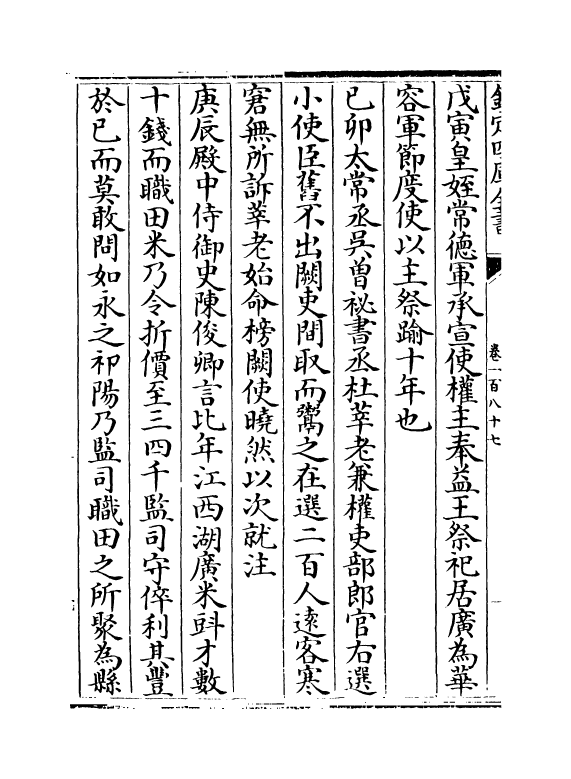 欽定四庫全書
卷一百八十七
戊寅皇姪常德軍承宣使權主奉益王祭祀居廣為華
容軍節度使以主祭踰十年也
己卯太常丞吳曾祕書丞杜莘老兼權吏部郎官右選
小使臣舊不出闕吏間取而鬻之在選二百人逺客寒
窘無所訴莘老始命榜闕使曉然以次就注
庚辰殿中侍御史陳俊卿言比年江西湖廣米㪷才數
十錢而職田米乃令折價至三四千監司守倅利其豐
於已而莫敢問如永之祁陽乃監司職田之所聚為縣